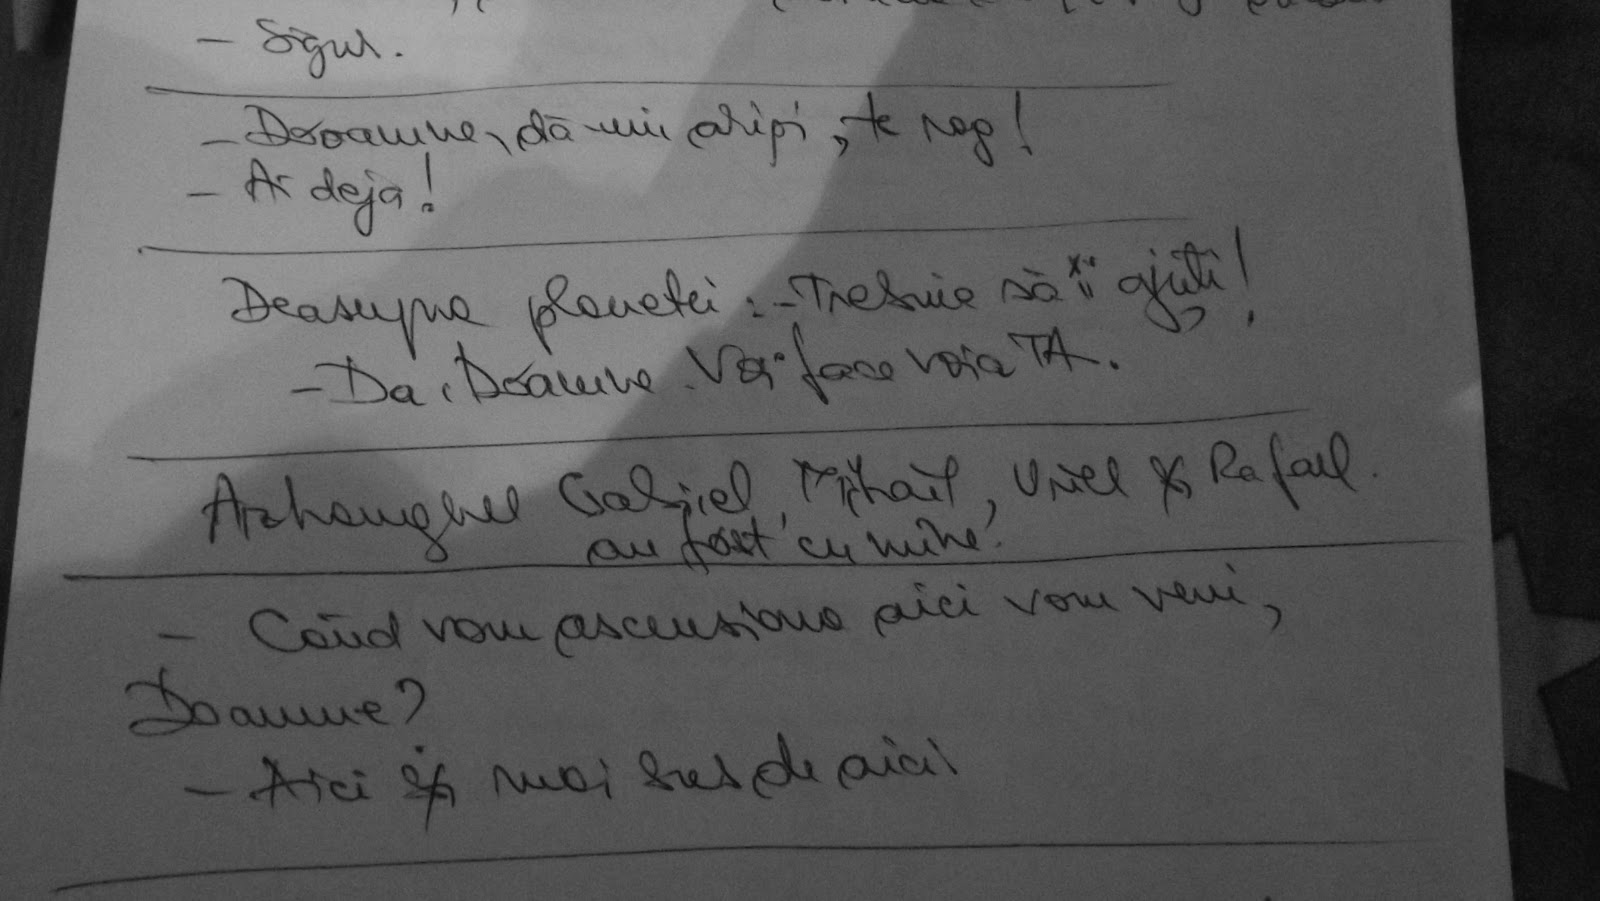 - Sigur.
- Doamne, dă-mi aripi, te rog!
- Ai deja!
Deasupra planetei: - Trebuie să îi ajuți!
- Da, Doamne. Voi face voia TA.
Arhanghel Gabriel, Mihail, Uriel și Rafael.
au fost cu mine!
- Când vom ascensiona aici vom veni,
Doamne?
- Aici și mai sus de aici!